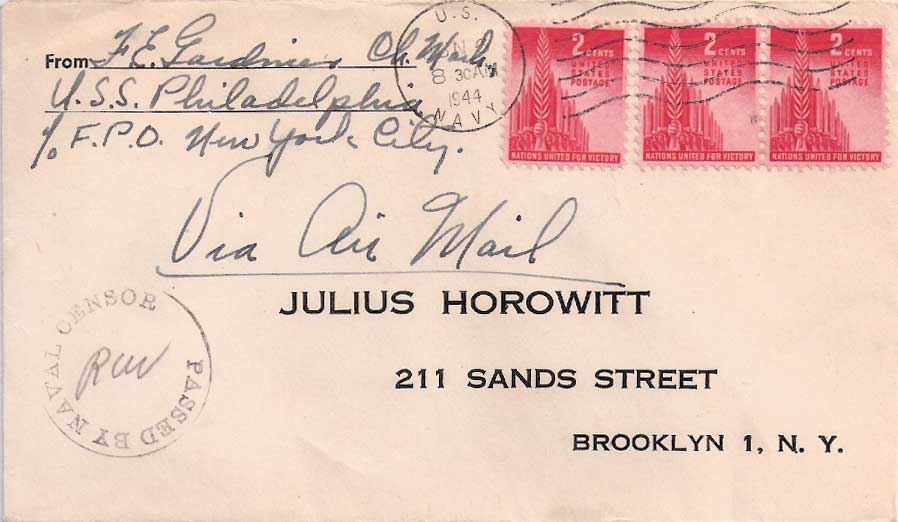 From F. E. Gardiner Ch. Mach.
U.S.S. Philadelphia
℅ F.P.O. New York City.
U.S.
8 30 AM
1944
NAVY
2 CENTS
UNITED
STATES
POSTAGE
NATIONS UNITED FOR VICTORY
2 CENTS
UNITED
STATES
POSTAGE
NATIONS UNITED FOR VICTORY
2 CENTS
UNITED
STATES
POSTAGE
NATIONS UNITED FOR VICTORY
Via Air Mail
JULIUS HOROWITT
211 SANDS STREET
BROOKLYN 1, N. Y.
PASSED BY NAVAL CENSOR
RW